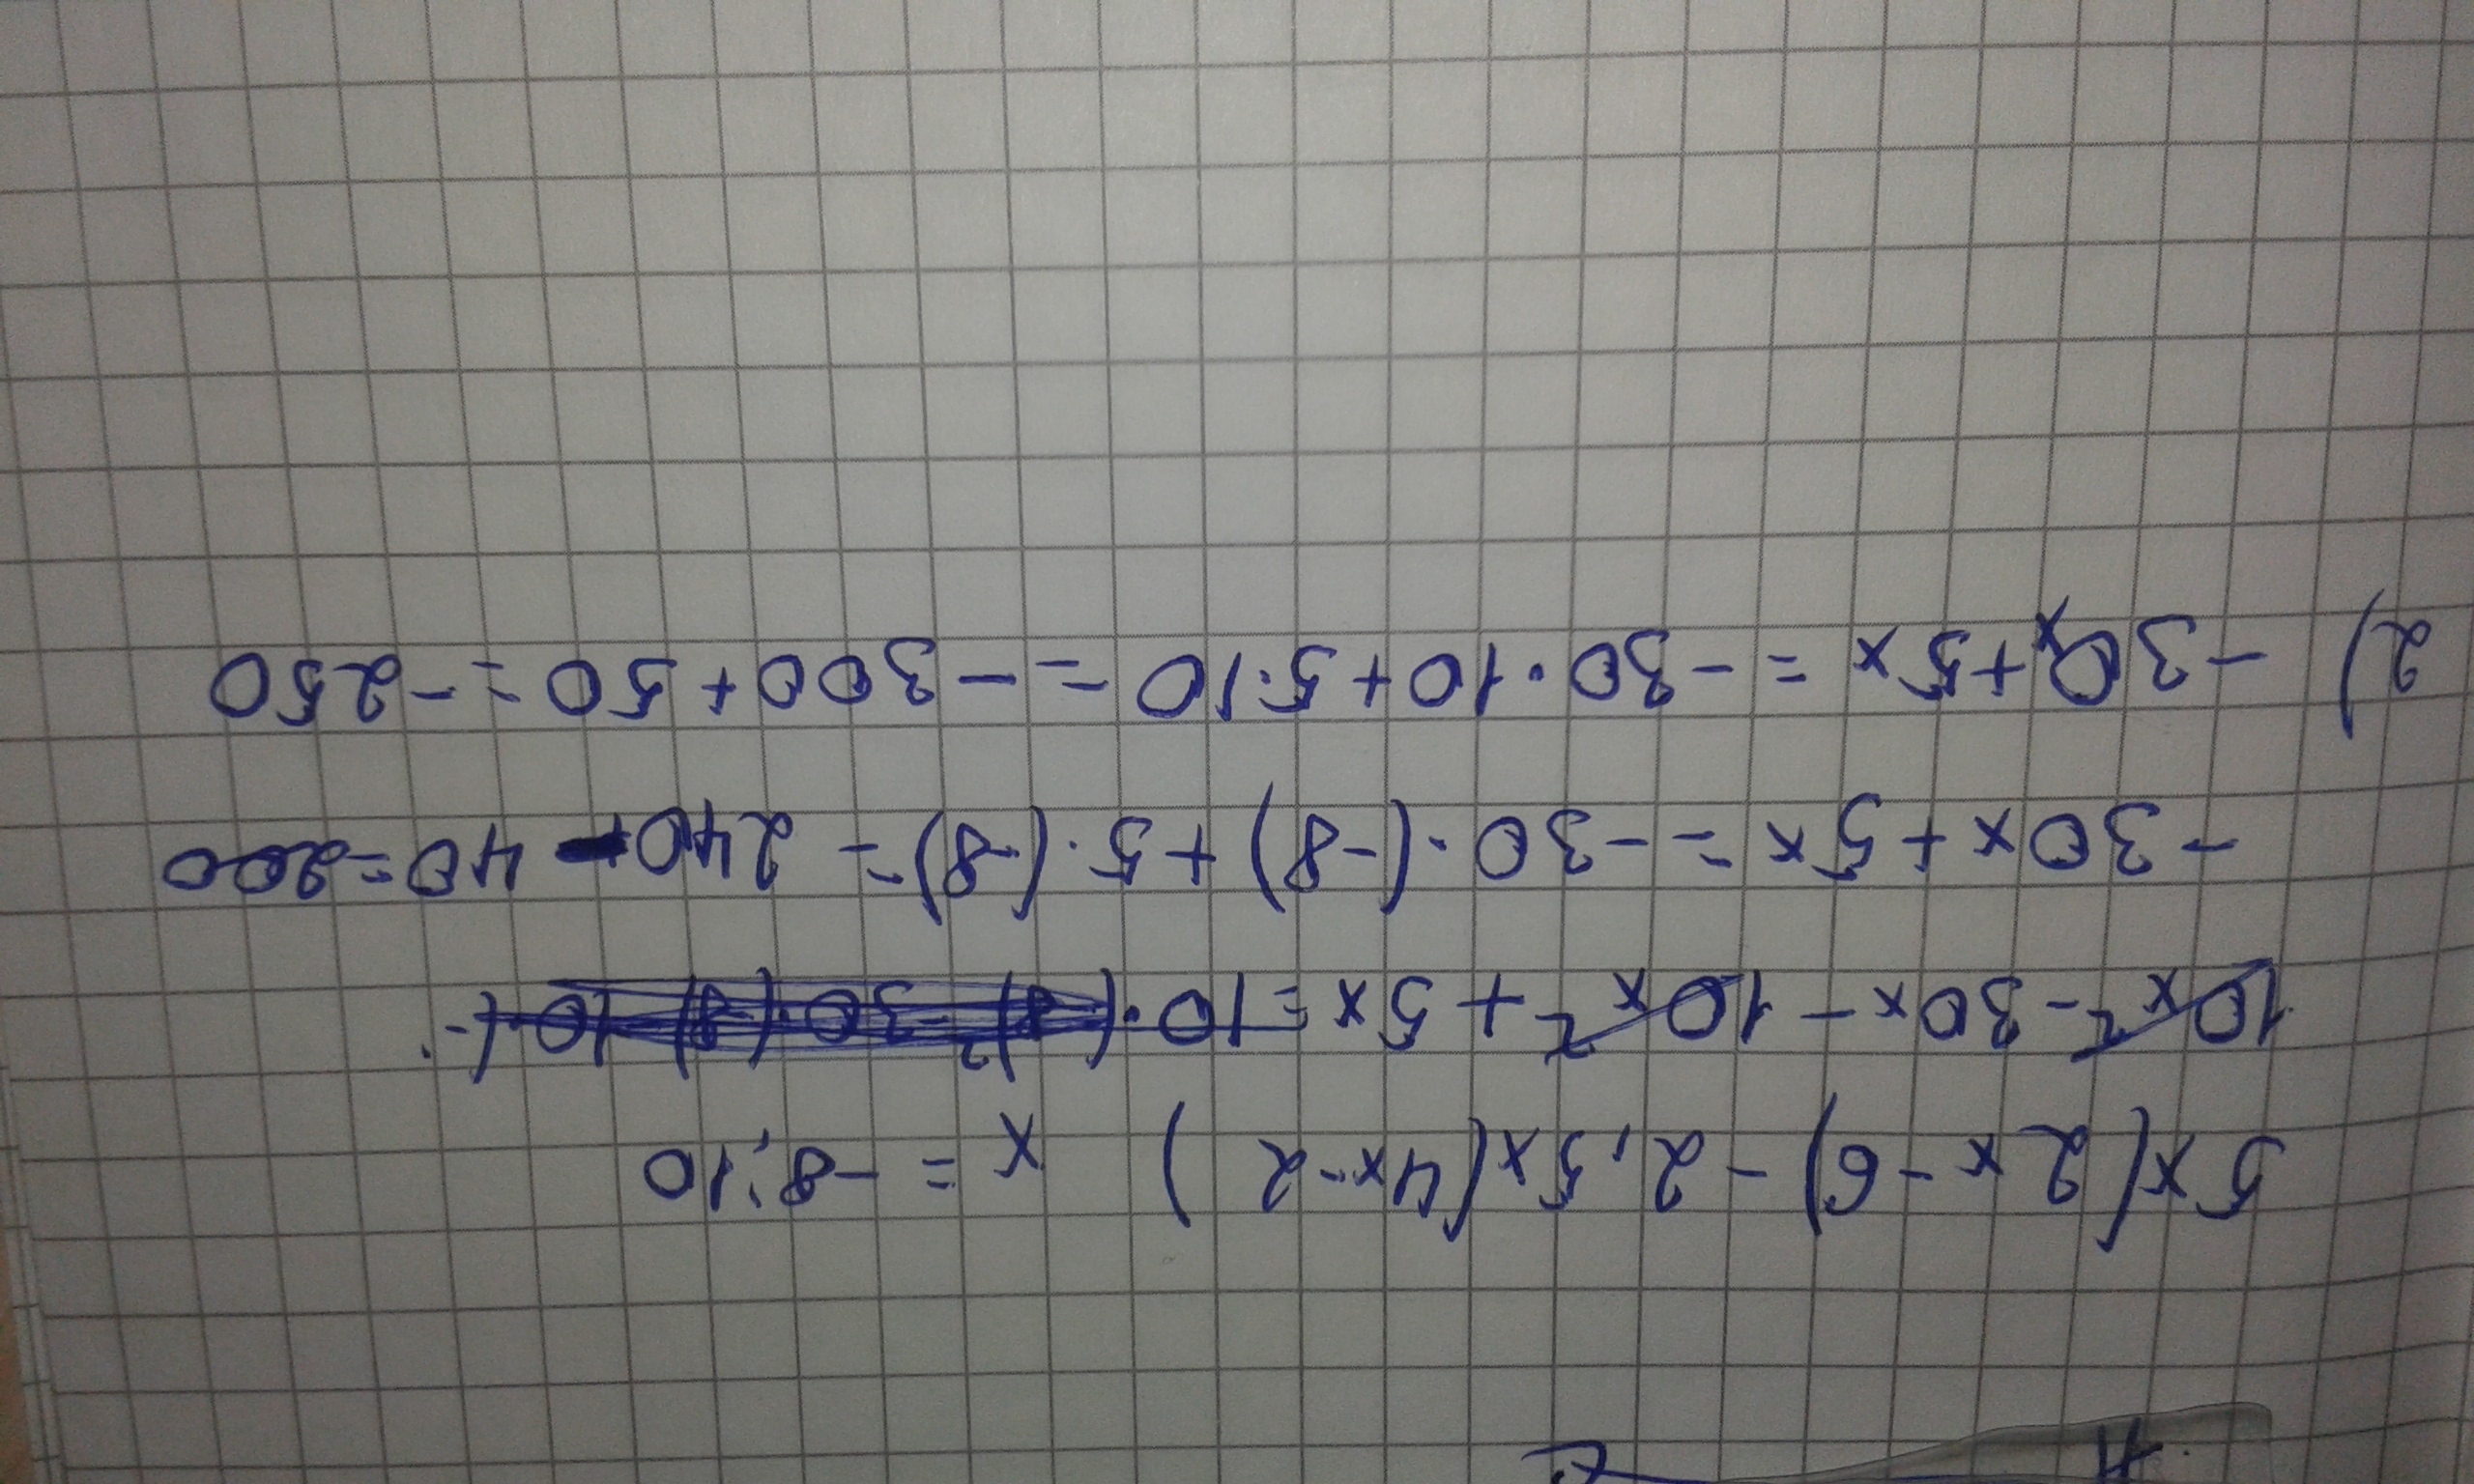 5x(2x-6)-2,5x(4x-2) x=-8;10
10x²-30x-10x²+5x=10·(
-30x+5x=-30·(-8)+5·(-8)=240-40=200
2) -30x+5x=-30·10+5·10=-300+50=-250